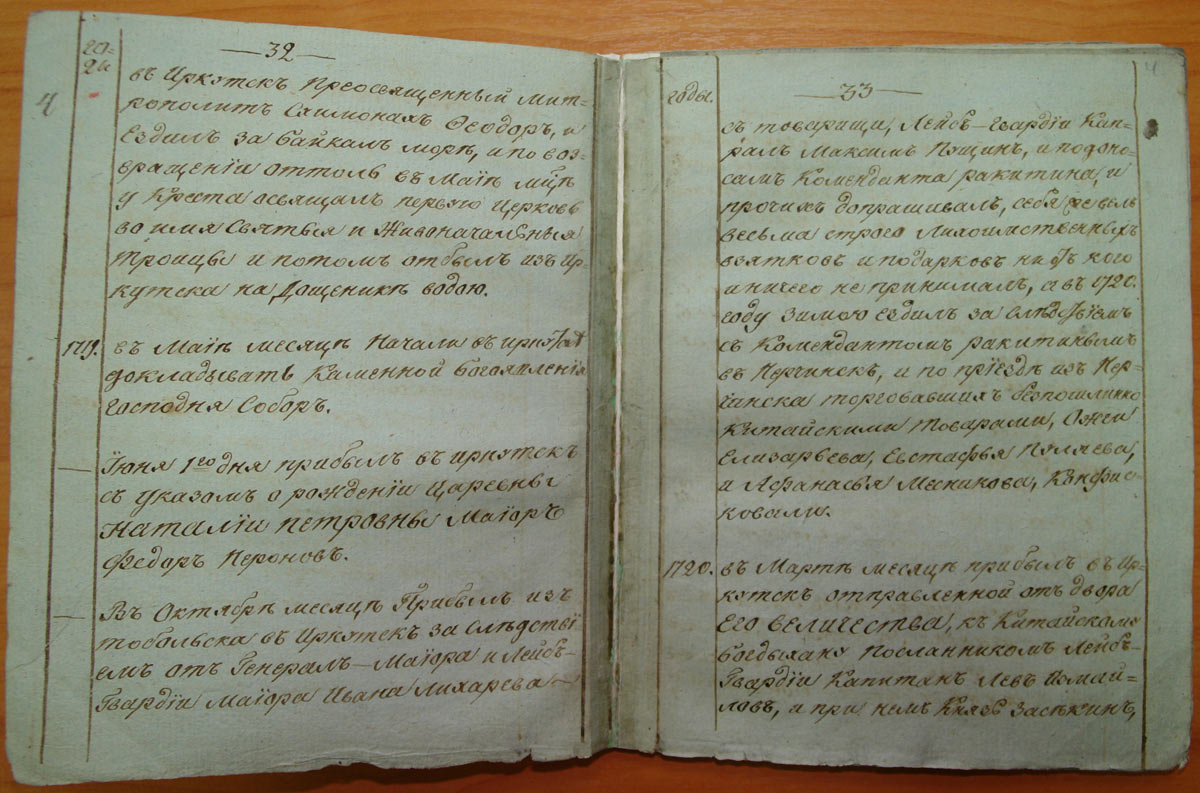 го-
ды
—32—
4
въ Иркутскъ Преосвященный Мит=
рополитъ Схимонахъ Ѳеодоръ, и
ѣздилъ за байкалъ море, и по воз=
вращенїи оттоль въ Маїѣ мцѣ
у Креста освящалъ первую Церковь
во имя Святыя и Живоначальныя
троицы и потомъ отбылъ изъ Ир-
кутска на Дощеникѣ водою.
1719. въ Маїѣ месяцѣ Начали въ иркутскѣ
докладывать Каменной богоявленїя
господня Соборъ.
— Їюня 1го дня прибылъ въ иркутскъ
съ указомъ о рожденїи Царевны
Наталїи петровны Маїоръ
Федоръ Перонов.
— Въ Октябрѣ месяцѣ Прибылъ изъ
тобольска въ Иркутскъ за слѣдствї=
емъ отъ Генералъ-Маїора и Лейбъ-
Гвардїи Маїора Ивана Лихарева
годы.
—33—
4.
съ товарищи, Лейбъ-Гвардїи Кап=
ралъ Максимъ Пущинъ, и по доно-
самъ Коменданта ракитина, и
прочихъ допрашивалъ, себя велъ
весьма строго Лихоимственныхъ
взятковъ и подарковъ ни отъ кого
и ничего не принималъ, а въ 1720.
году зимою ѣздилъ за слѣдствїемъ
съ Комендантомъ ракитинымъ
въ Нерчинскъ, и по прїездѣ изъ Нер-
чинска торговавшихъ безпошлинно
китайскими товарами,
Елизарьева, Евстафья Пуляева,
и Афанасья Месникова, Конфис-
ковали.
1720. въ Мартѣ месяцѣ прибылъ въ Ир-
кутскъ отправленной отъ двора
Его величества, къ Китайскому
богдыхану Посланникомъ Лейбъ-
Гвардїи Капитанъ Левъ Измай=
ловъ, и при немъ Князь Засѣкинъ,